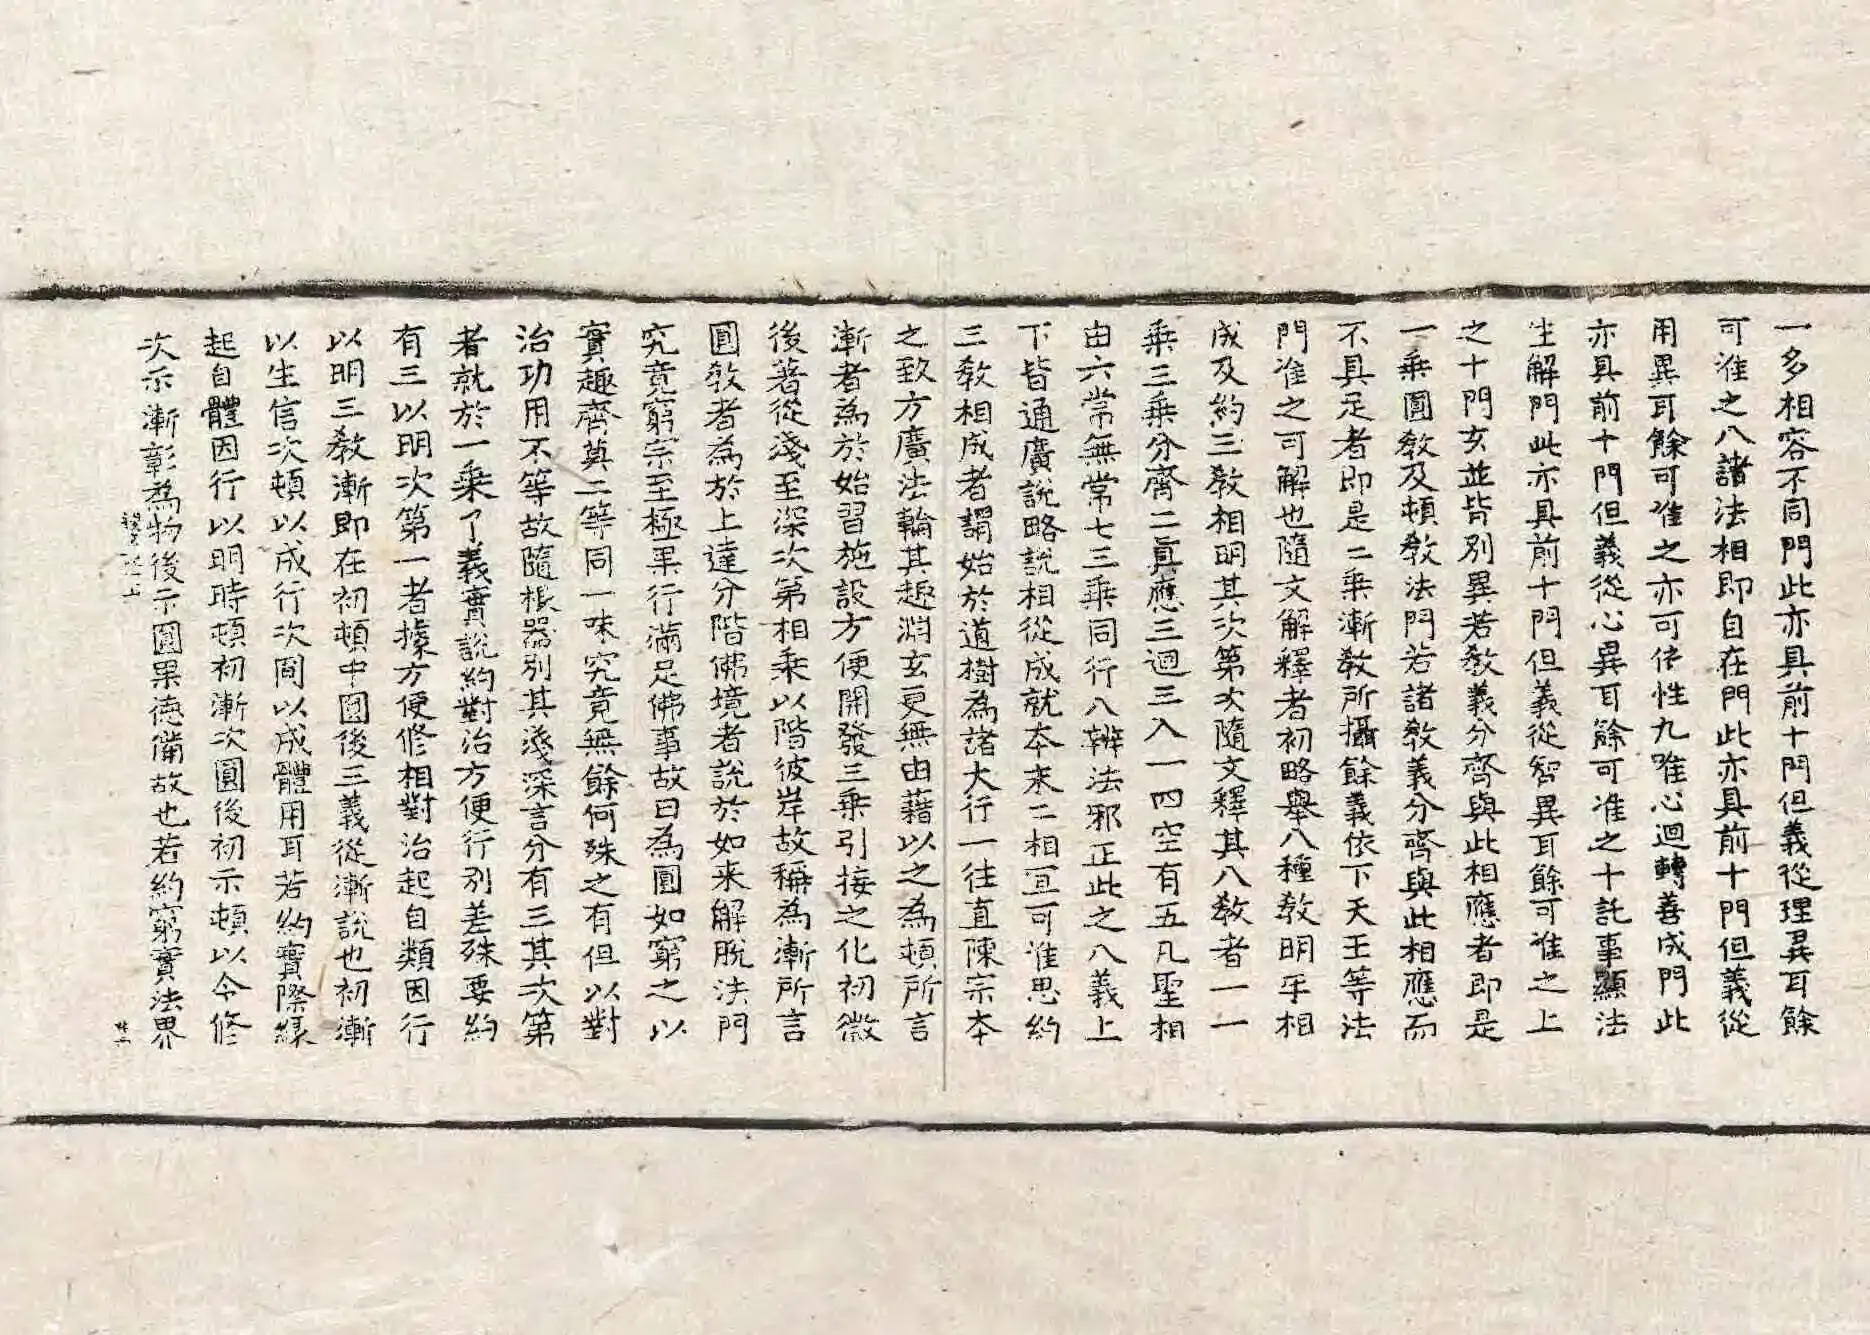 一多相容不同門此亦具前十門但義從理異耳餘
可准之八諸法相即自在門此亦具前十門但義從
用異耳餘可准之亦可依性九唯心迴轉善成門此
亦具前十門但義從心異耳餘可准之十託事顯法
生解門此亦具前十門但義從智異耳餘可准之上
之十門玄並皆別異若教義分齊與此相應者即是
一乗圓教及頓教法門若諸教義分齊與此相應而
不具足者即是二乗漸教所攝餘義依下天王等法
門准之可解也隨文解釋者初略舉八種教明乎相
成及約三教相明其次第次隨文釋其八教者一一
乗三乗分齊二真應三迴三入一四空有五凡聖相
由六常無常七三乗同行八辨法邪正此之八義上
下皆通廣說略說相從成就本来二相冝可准思約
三教相成者謂始於道樹為諸大行一往直陳宗本
之致方廣法輪其趣淵玄更無由藉以之為頓所言
漸者為於始習施設方便開發三乗引接之化初微
後著從淺至深次第相乗以階彼岸故稱為漸所言
圓教者為於上達分階佛境者說於如来解脫法門
究竟窮宗至極果行滿足佛事故曰為圓如窮之以
實趣齊莫二等同一味究竟無餘何殊之有但以對
治功用不等故隨根器別其淺深言分有三其次第
者就於一乗了義實說約對治方便行別差殊要約
有三以明次第一者據方便修相對治起自類因行
以明三教漸即在初頓中圓後三義從漸說也初漸
以生信次頓以成行次圓以成體用耳若約實際緣
起自體因行以明時頓初漸次圓後初示頓以令修
次示漸彰為物後示圓果德備故也若約窮實法界